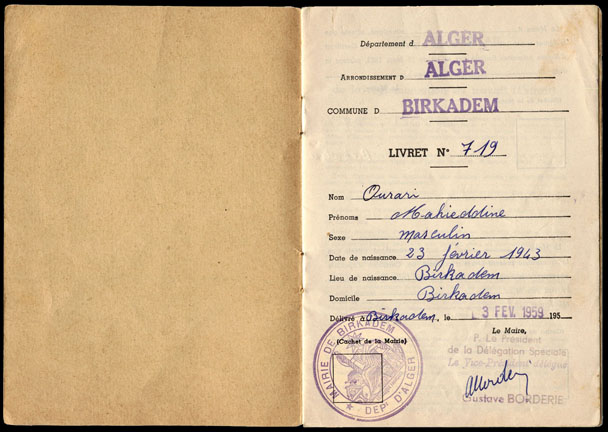 Département d ALGER
ARRONDISSEMENT D ALGER
COMMUNE D BIRKADEM
LIVRET N° 719
Nom Ourari
Prénoms Mahieddine
Sexe Masculin
Date de naissance 23 février 1943
Lieu de naissance Birkadem
Domicile Birkadem
Délivré à Birkadem, le 3 FEV. 1959 195
(Cachet de la Mairie)
Le Maire,
MAIRIE DE BIRKADEM
★ DEPT D'ALGER
P. Le Président
de la Délégation Spéciale
Le Vice-Président délégué
Gustave BORDERIE